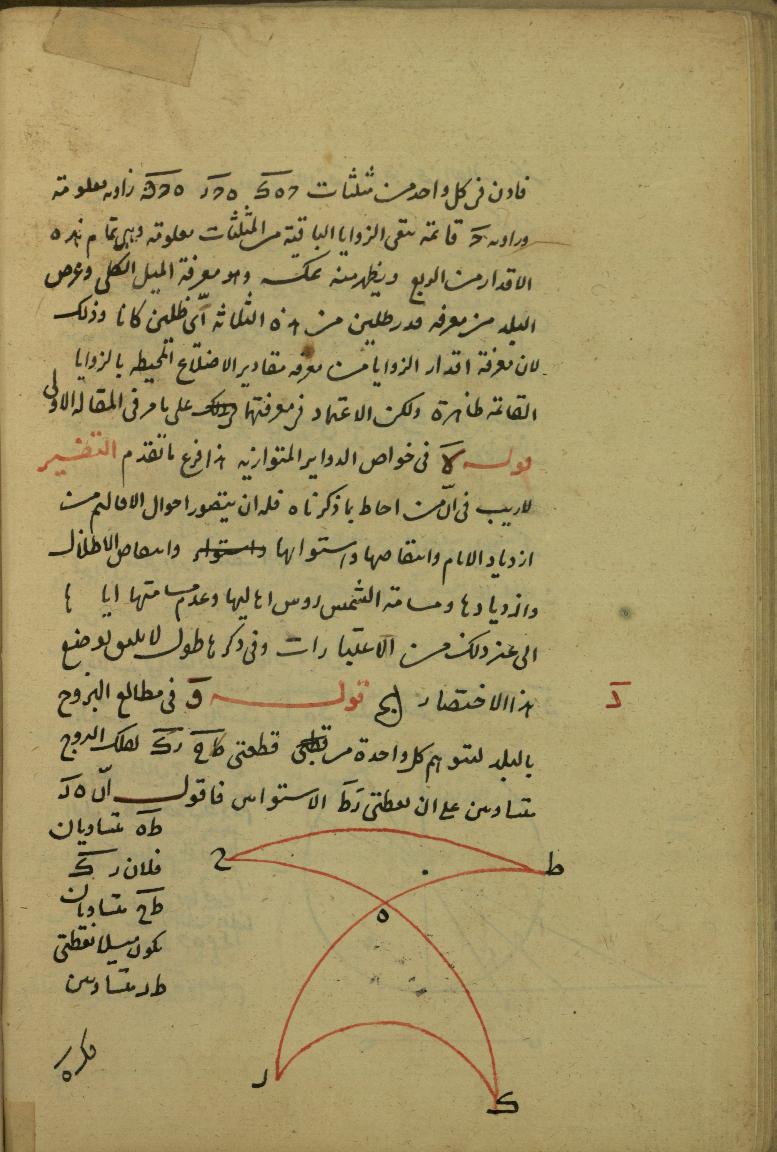 فاذن فى كل واحد من مثلثات زاوية معلومة
وزاوية ح قائمة تبقى الزوايا الباقية من المثلثات معلومة وهى تمام هذه
الاقدار من الربع ويظهر منه عكسه وهو معرفة الميل الكلى وعرض
البلد من معرفة قدر ظلين من هذه الثلاثة اىّ ظلين كانا وذلك
لان معرفة اقدار الزوايا من معرفة مقادير الاضلاع المحيطة بالزوايا
القائمة ظاهرة ولكن الاعتماد فى معرفتها على ما مر فى المقالة الاولى
قوله فى خواص الدواير المتوازيه هذا فرع ما تقدم التفسير
لا ريب فى انّ من احاط بما ذكرناه فله ان يتصور احوال الاقاليم من
ازدياد الايام وانتقاصها واستوائها وانتقاص الاظلال
وازديادها ومسامتة الشمس روس اهاليها وعدم مسامتتها اياها
الى غير ذلك من الاعتبارات وفى ذكرها طول لا يليق بوضع
هذا الاختصار قوله فى مطالع البروج
بالبلد لنتوهم كل واحدة من قطعتى ط ح ر ك لفلك البروج
متساويين على ان نقطتى ر ط الاستواس فاقول انّ ه ر
ط ه متساويان
فلان ر ك
ط ح متساويان
يكون ميلا نقطتى
متساويين
ح
ط
ه
ر
ك